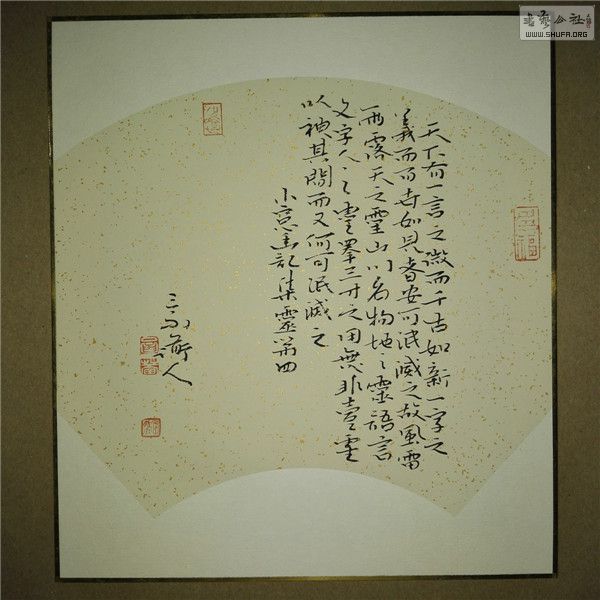 天下有一言之微而千古如新一字之
義而百世如見者安可泯滅之故風雷
雨露天之靈山川名物地之靈語言
文字人之靈畢三才之用無非一靈
以神其間而又何可泯滅之
小窗幽記集靈第四
書藝公社
WWW.SHUFA.ORG